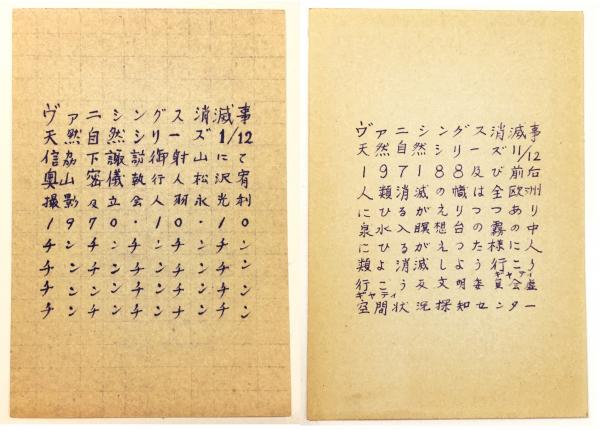 ヴァニシングス消滅事
天然自然シリーズ1/12
信刕下諏訪御射山にて
奥山密儀執行人松沢宥
撮影及立会人羽永光利
1970・10・10
チンチンチンチンチン
チンチンチンチンチン
チンチンチンチンチン
チンチンチンチンチン
ヴァニシングス消滅事
天然自然シリーズ11/12
197188及び前右
人類消滅の幟は全欧洲
にひるがえりつつあり
泉水入瞑想台の霧の中
にひるがえつた様に人
類よ消滅しよう行こう
ギャティ
行こう反文明委員会虚
ギャティ
空間状況探知センター